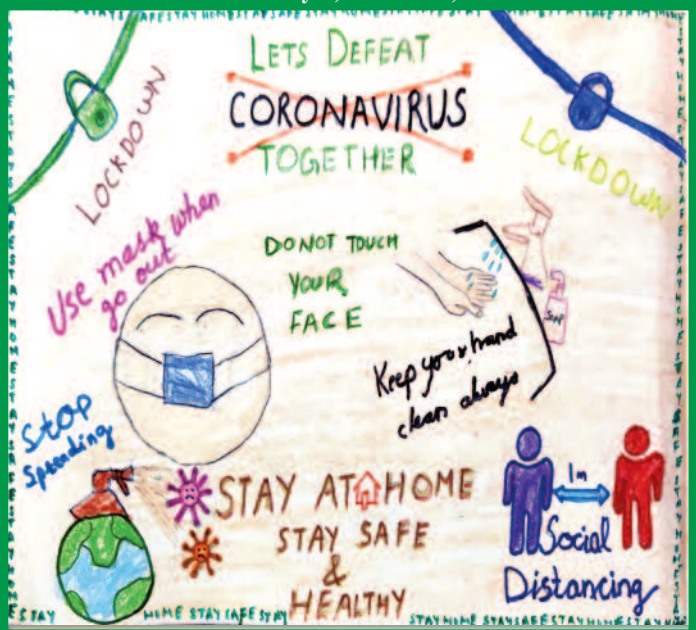 STAY HOME STAY SAFE STAY HOME STAY SAFE
LETS DEFEAT
CORONAVIRUS
TOGETHER
LOCKDOWN
LOCKDOWN
Use mask when
go out
DO NOT TOUCH
YOUR
FACE
SOAP
Keep your hand
clean always
Stop
Spreading
STAY AT HOME
STAY SAFE
&
HEALTHY
1m
Social
Distancing
E STAY
HOME STAY SAFE STAY
STAY HOME STAY SAFE STAY HOME STAY